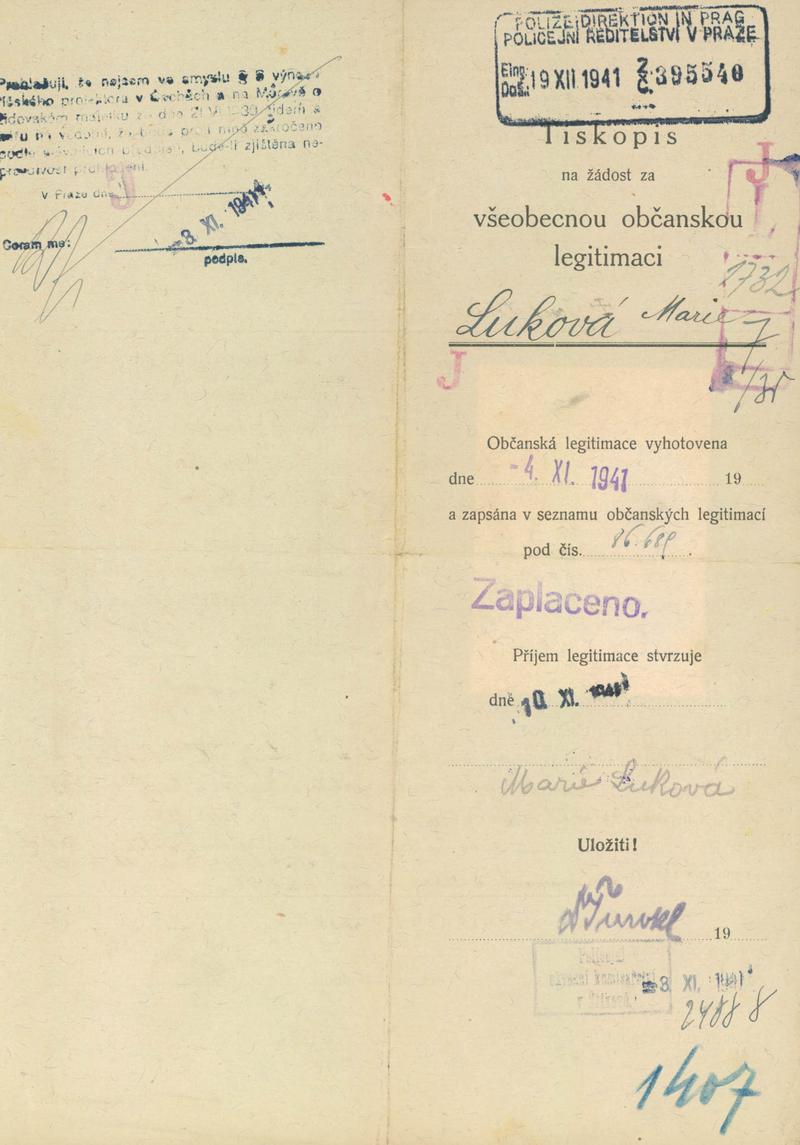 Prohlašuji, že nejsem ve smyslu § 3 výnosu
říšského protektora v Čechách a na Moravě o
židovském majetku ze dne 21.VI.1939 židem a
podle
pravdivost prohlášení.
V Praze dne
-3. XI. 1941
Coram me:
podpis.
J
POLIZEIDIREKTION IN PRAG
POLICEJNÍ ŘEDITELSTVÍ V PRAZE
Eing.
Doš. 19 XII 1941 Z. Č. 395540
Tiskopis
na žádost za
J
všeobecnou občanskou
legitimaci
1732
Luková Marie
J
Občanská legitimace vyhotovena
dne -4. XI. 1941 19
a zapsána v seznamu občanských legitimací
pod čís. 86.689.
Zaplaceno.
Příjem legitimace stvrzuje
dne 10. XI. 1941
Marie Luková
Uložiti!
19
Policejní
-3. XI. 1941
24888
1407